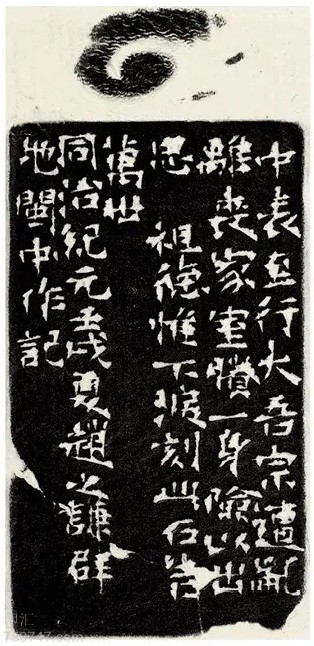 中表行大吾宗遭亂
離喪家室賸一身險以出
思 祖德惟不刻此石告
萬世
同治紀元壬戌夏趙之謙辟
地閩中作記